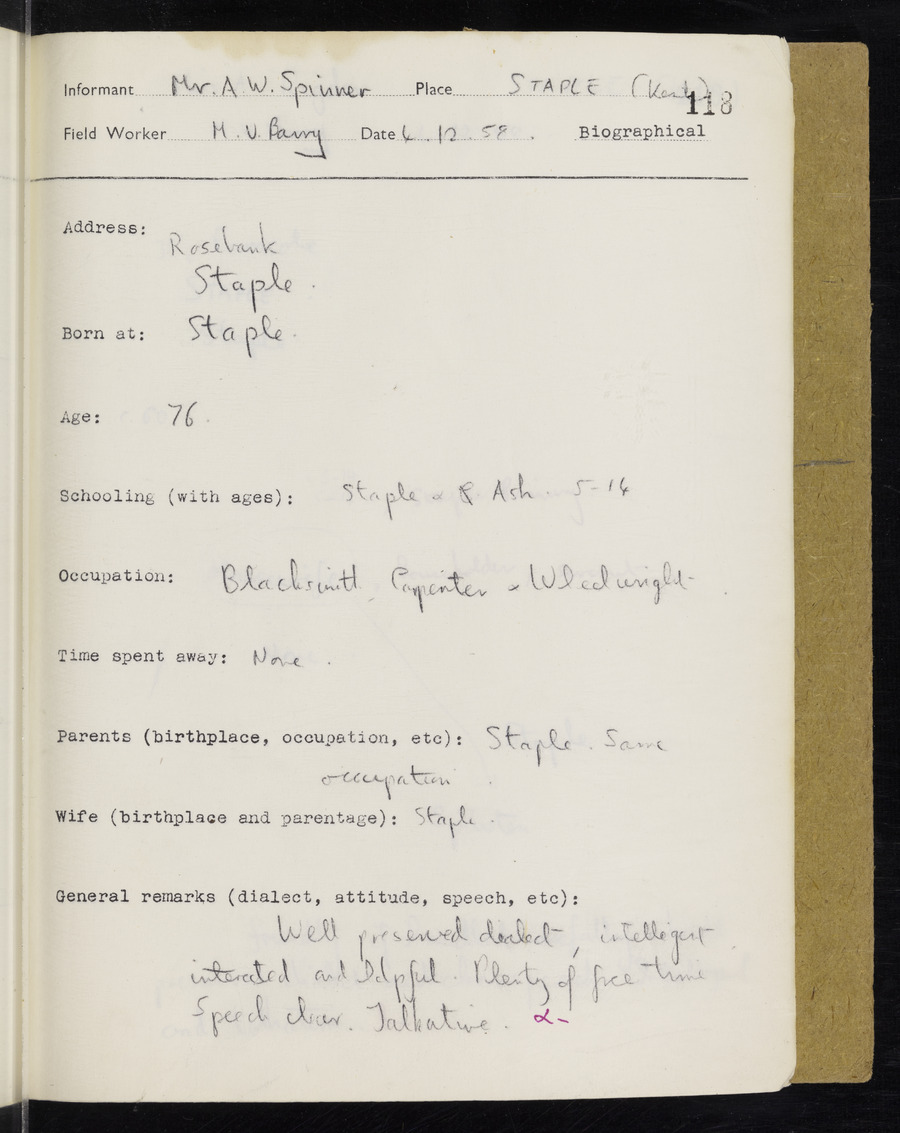 Informant Mr. A. W. Spinner Place STAPLE (Kent)
118
Field Worker M. V. Barry Date 6. 12. 58. Biographical
Address: Rosebank
Staple.
Born at: Staple.
Age: 76.
Schooling (with ages): Staple & Ash. 5-14
Occupation: Blacksmith, Carpenter & Wheelwright.
Time spent away: None.
Parents (birthplace, occupation, etc): Staple. Same
occupation.
Wife (birthplace and parentage): Staple.
General remarks (dialect, attitude, speech, etc):
Well preserved dialect, intelligent,
interested and helpful. Plenty of free time
Speech clear. Talkative. α-